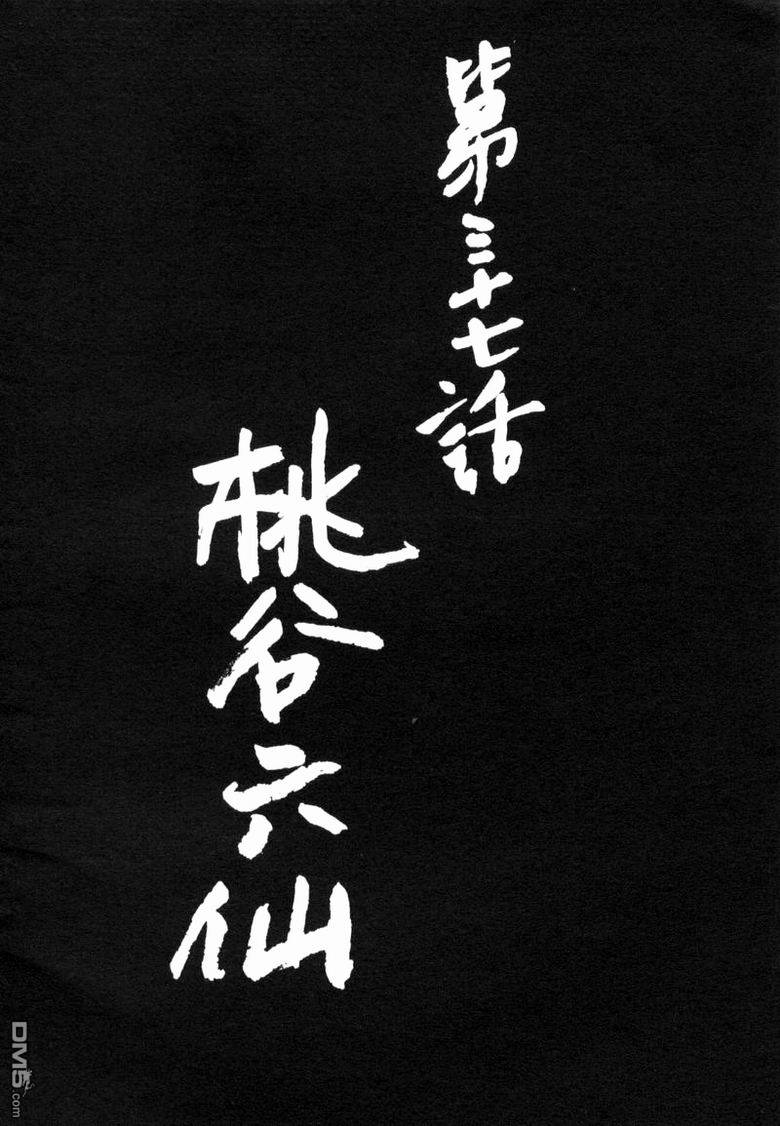 第三十七話
桃谷六仙
DM5.com